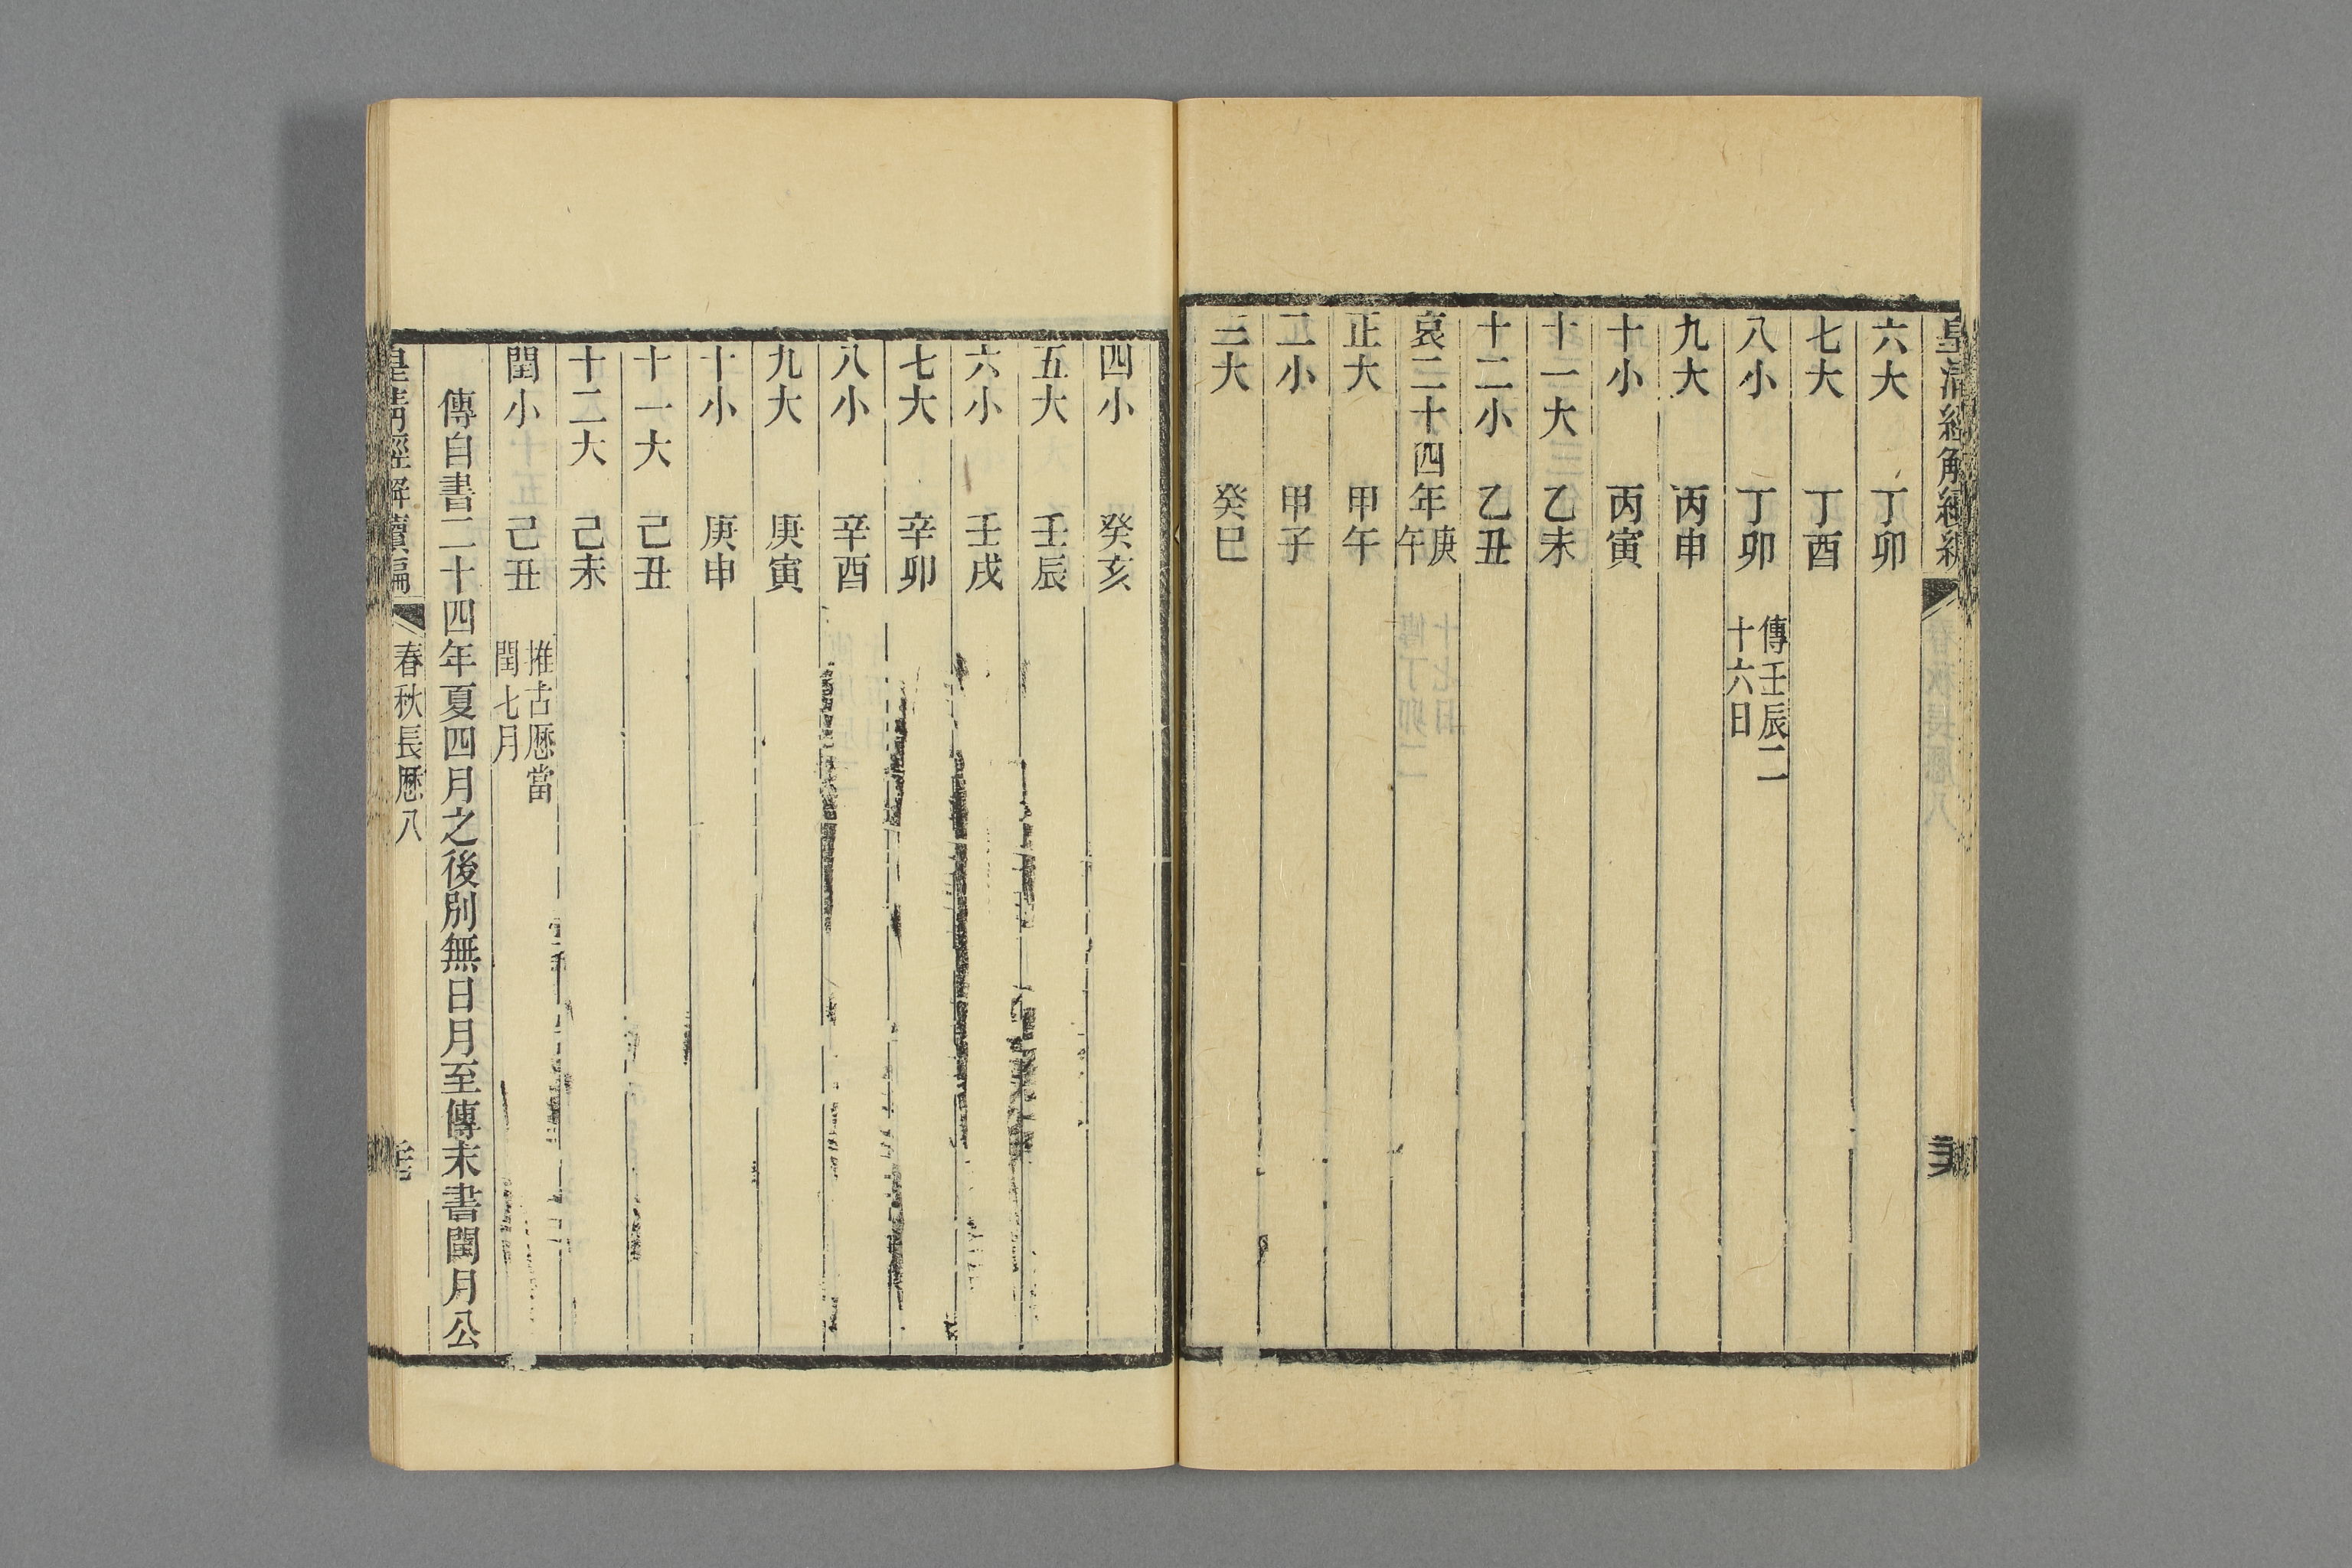 皇清經解續編
六大 丁卯
七大 丁酉
八小 丁卯 傳壬辰二
十六日
九大 丙申
十小 丙寅
十一大 乙未
十二小 乙丑
哀二十四年庚
午
正大 甲午
二小 甲子
三大 癸巳
四小 癸亥
五大 壬辰
六小 壬戌
七大 辛卯
八小 辛酉
九大 庚寅
十小 庚申
十一大 己丑
十二大 己未
閏小 己丑 推古厯當
閏七月
傳自書二十四年夏四月之後別無日月至傳末書閏月公
皇清經解續編 春秋長厯八